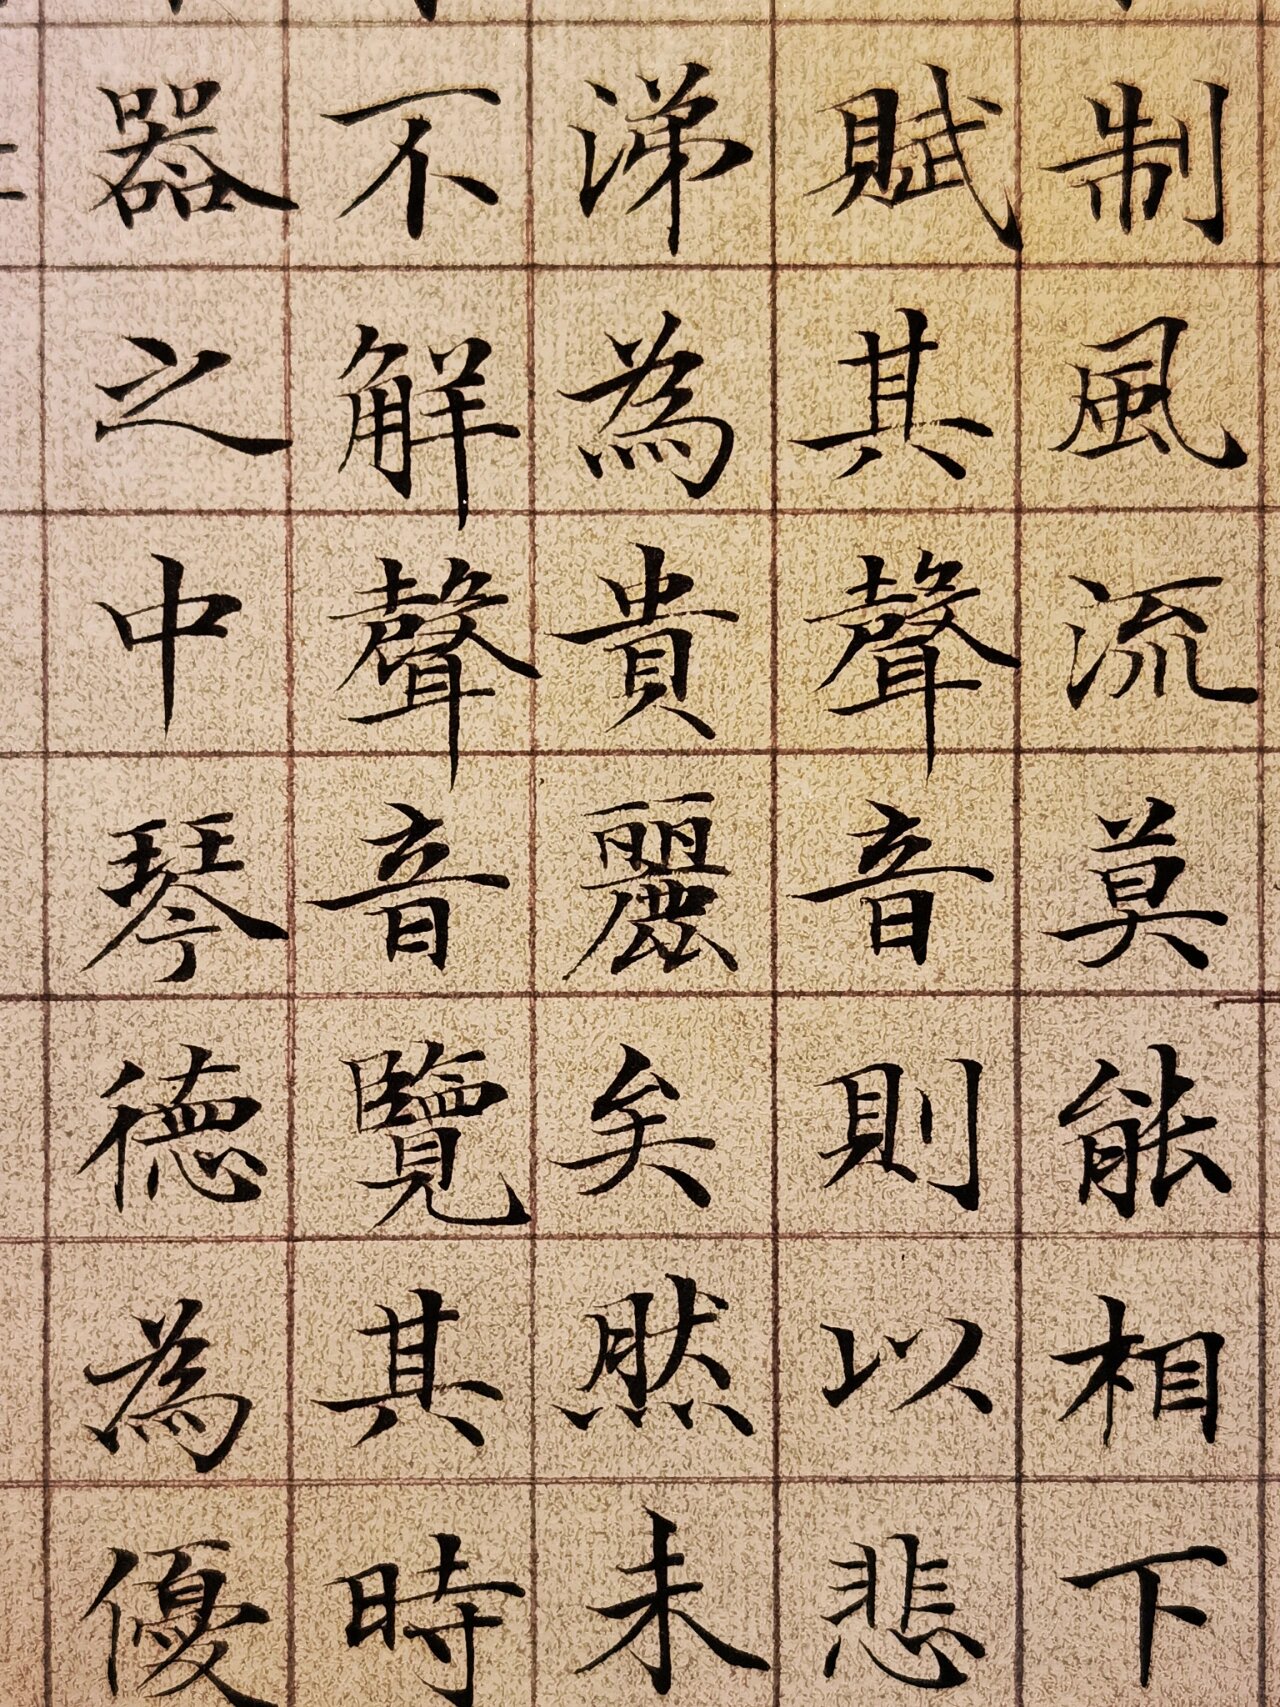 制風流莫能相下
賦其聲音則以悲
涕為貴麗矣然未
不解聲音覽其時
器之中琴德為優